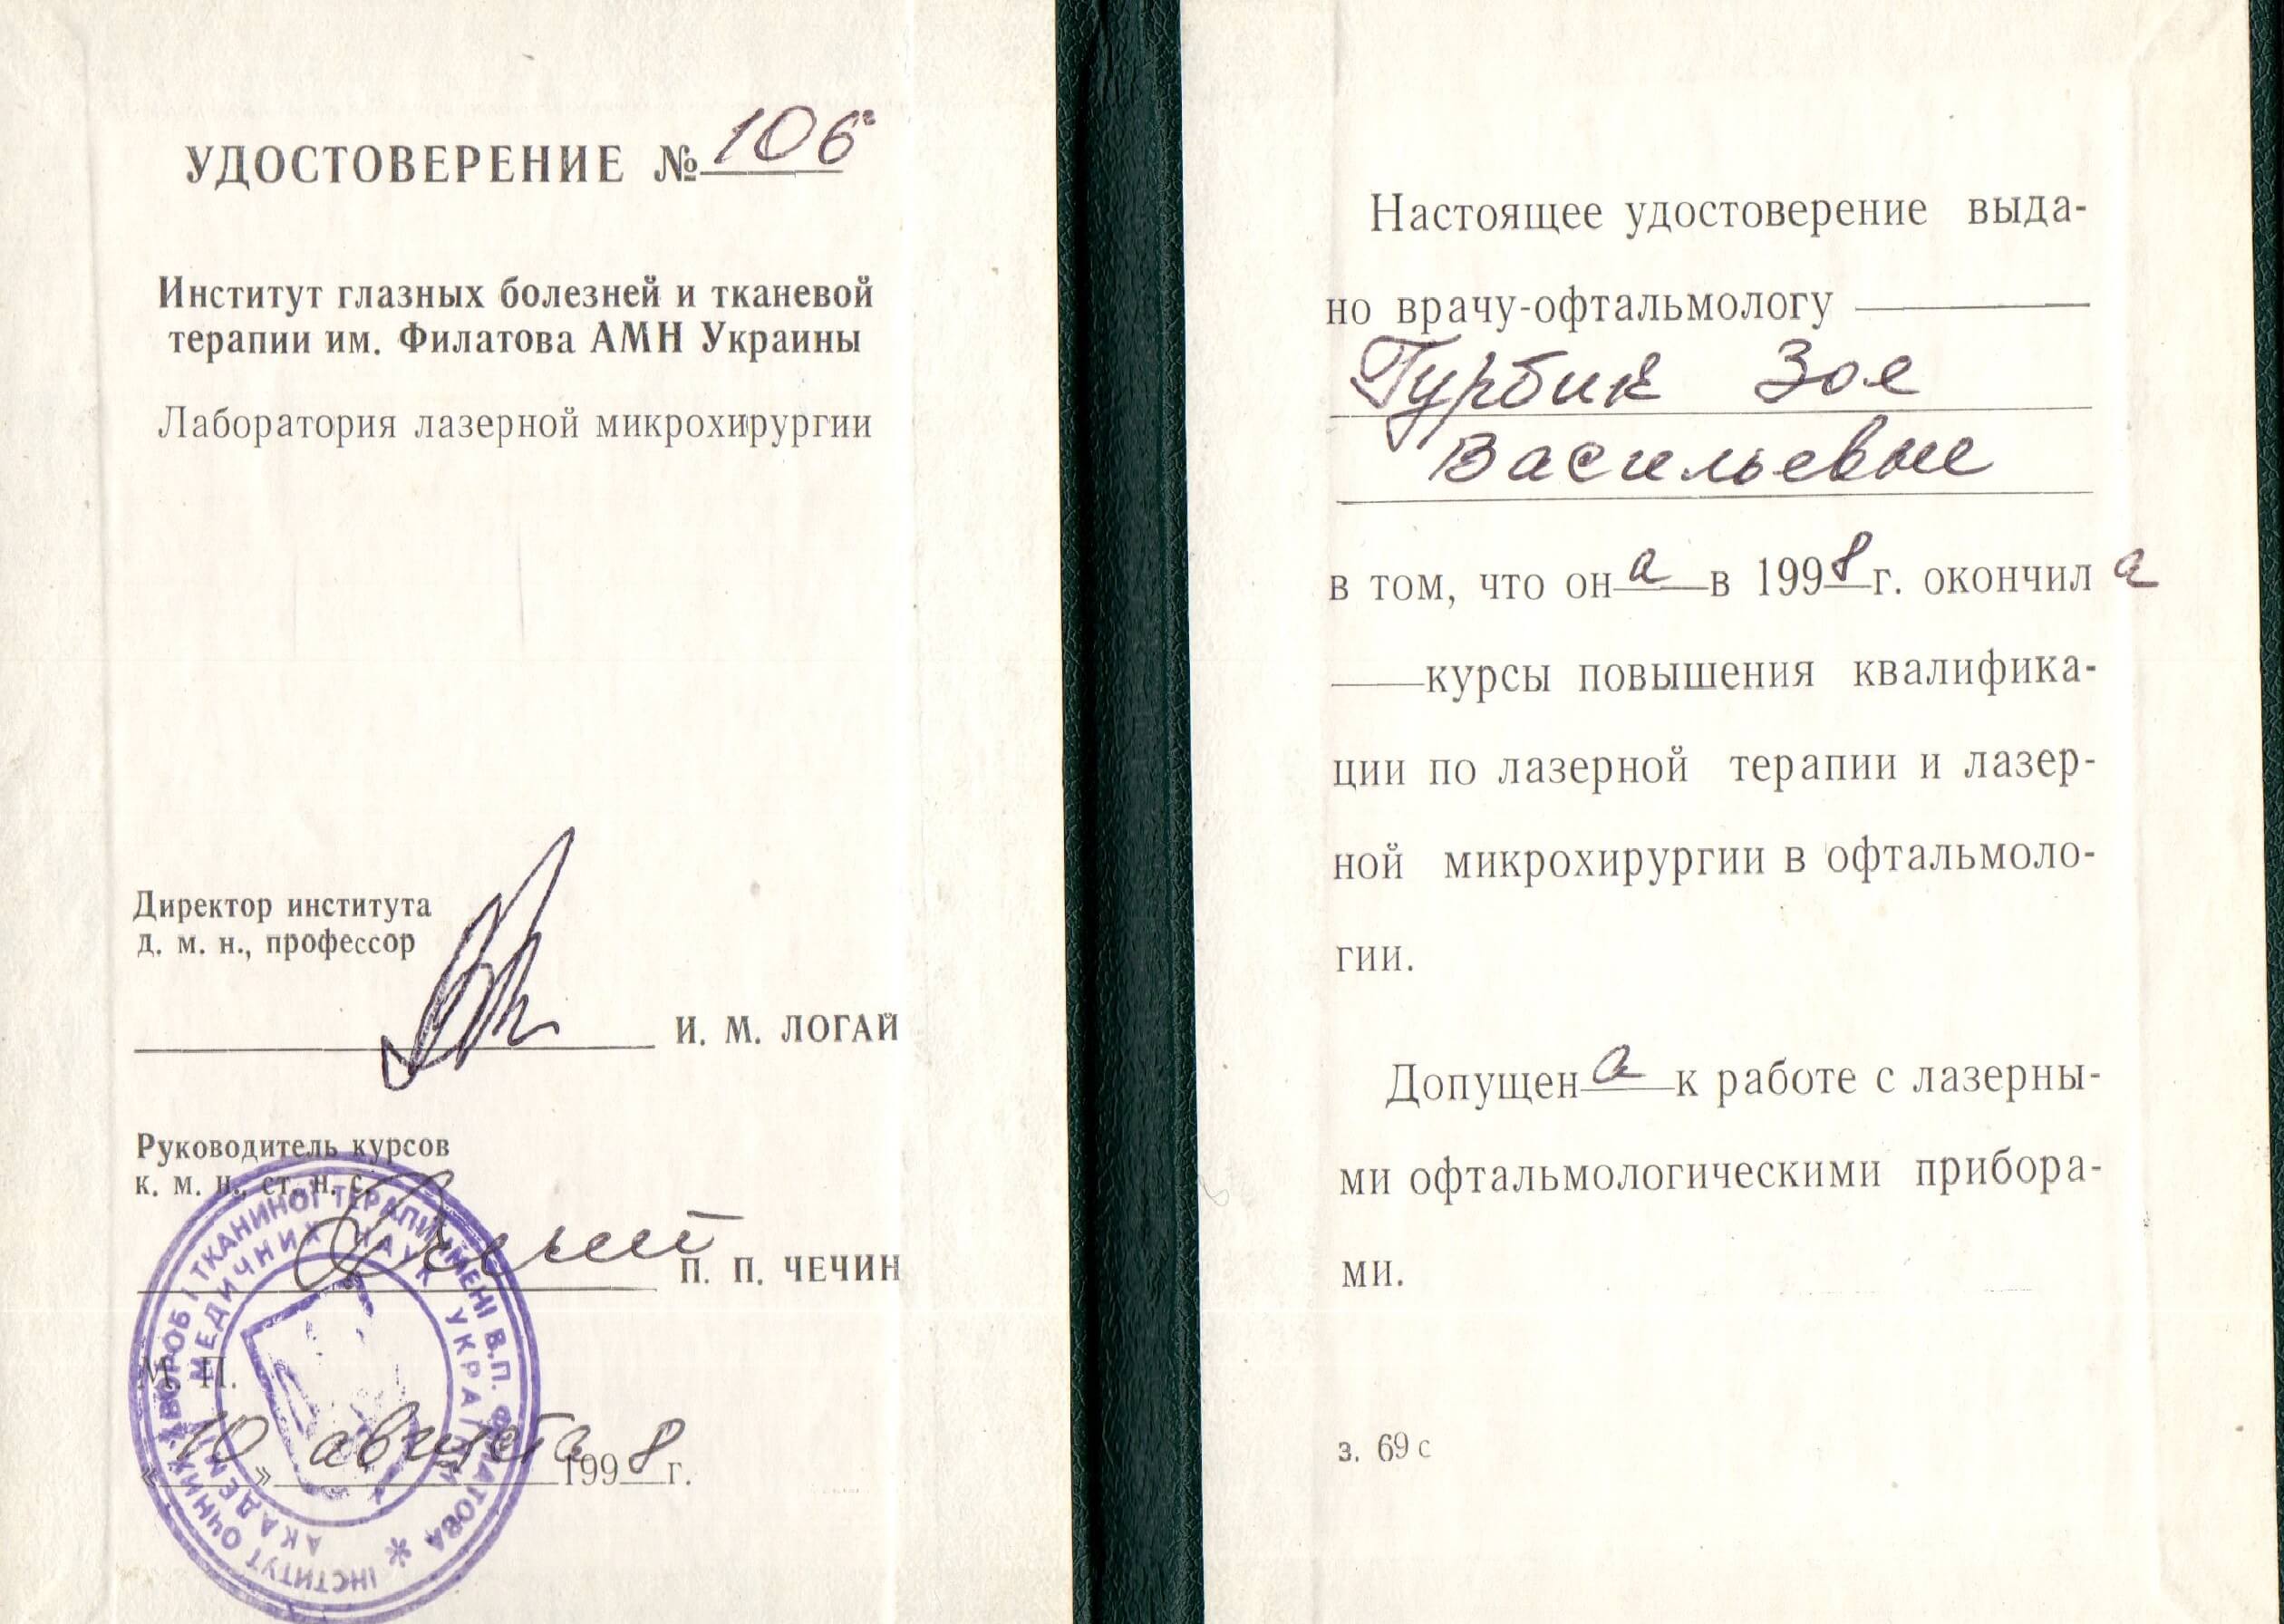 УДОСТОВЕРЕНИЕ № 106
Институт глазных болезней и тканевой
терапии им. Филатова АМН Украины
Лаборатория лазерной микрохирургии
Директор института
д. м. н., профессор
И. М. ЛОГАЙ
Руководитель курсов
к. м. н., ст. н. с.
П. П. ЧЕЧИН
М. П.
«10» августа 1998 г.
ІНСТИТУТ ОЧНИХ ХВОРОБ І ТКАНИНОІ ТЕРАПИІ ІМЕНІ В.П. ФІЛАТОВА
АКАДЕМІЯ МЕДИЧНИХ НАУК УКРАЇНИ
Настоящее удостоверение выда-
но врачу-офтальмологу
Гурбик Зое
Васильевне
в том, что она в 1998 г. окончила
курсы повышения квалифика-
ции по лазерной терапии и лазер-
ной микрохирургии в офтальмоло-
гии.
Допущена к работе с лазерны-
ми офтальмологическими прибора-
ми.
з. 69 с